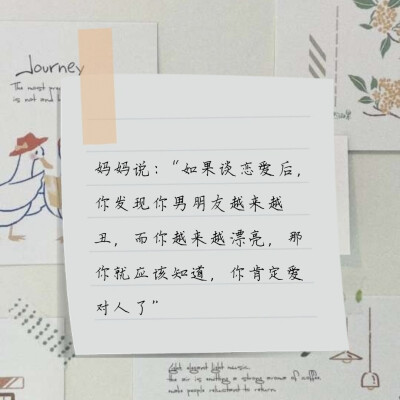 Journey
The most
is not and
妈妈说："如果谈恋爱后，
你发现你男朋友越来越
丑，而你越来越漂亮，那
你就应该知道，你肯定爱
对人了"
elegant light music.
the air is emitting a strong aroma of coffee
make people reluctant to return